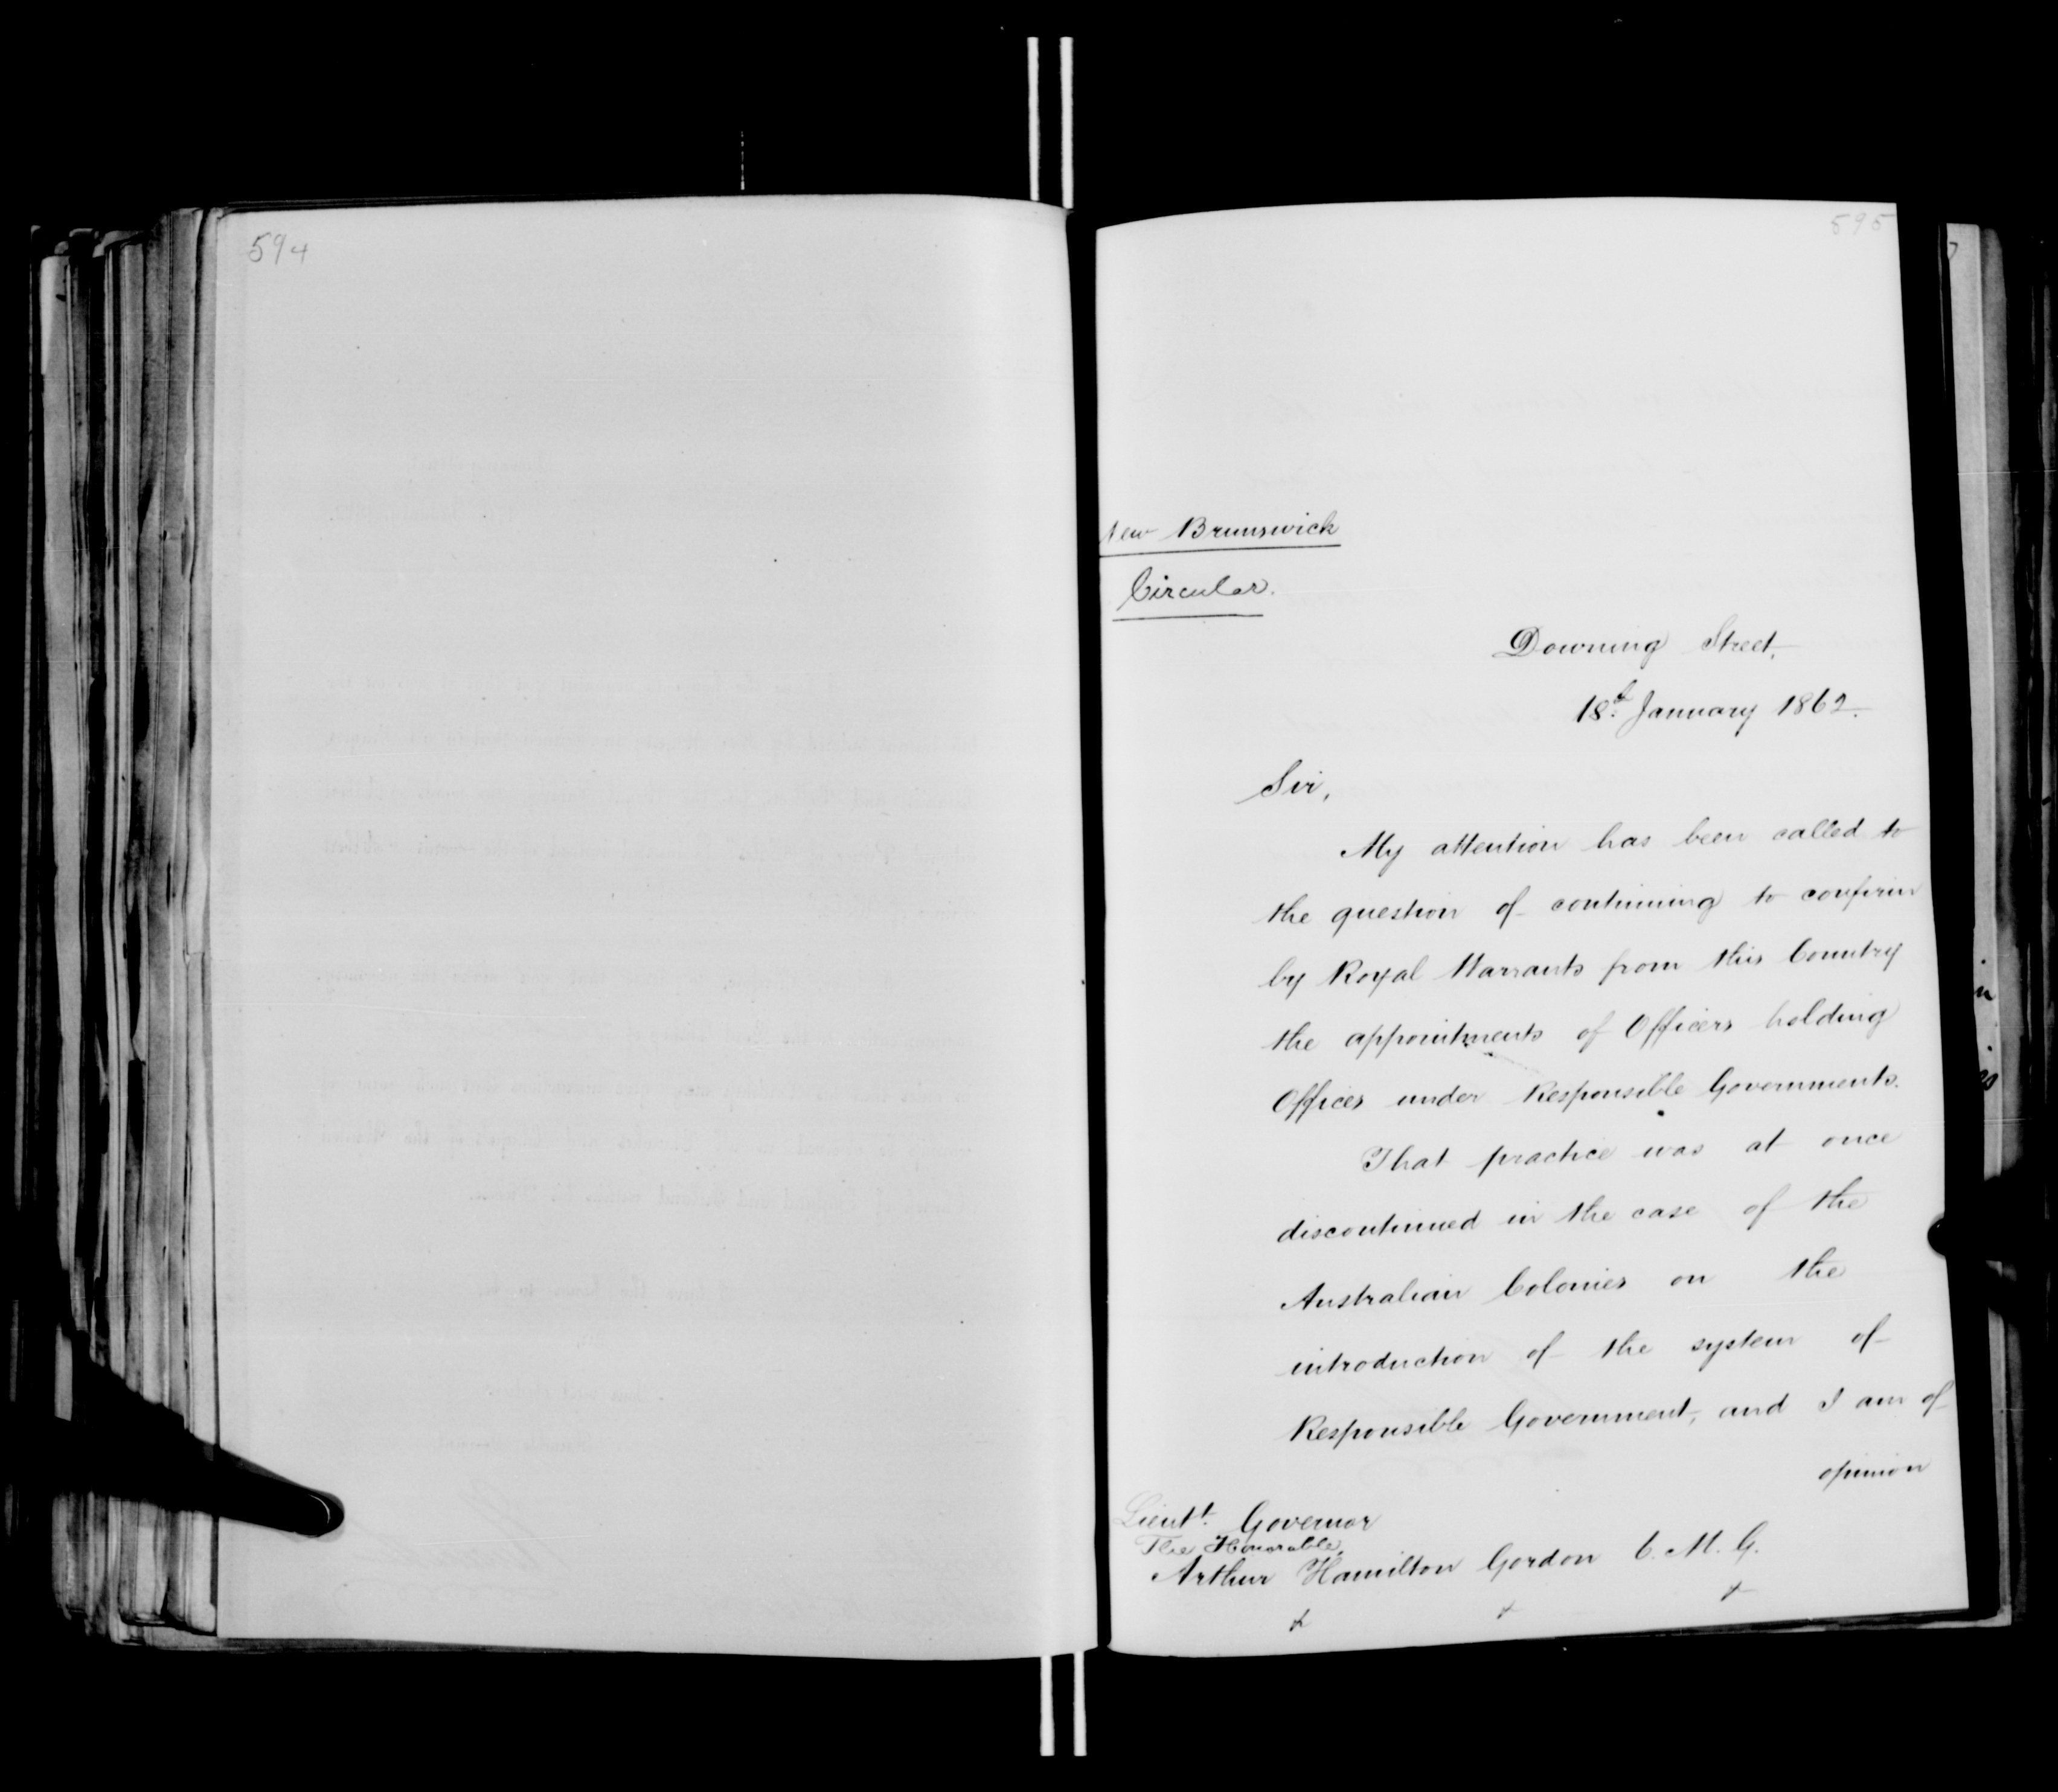 594
595
New Brunswick
Circular.
Downing Street,
18th January 1862.
Sir,
My attention has been called to
the question of continuing to confirm
by Royal Warrants from this Country
the appointments of Officers holding
Offices under Responsible Governments.
That practice was at once
discontinued in the case of the
Australian Colonies on the
introduction of the system of
Responsible Government, and I am of
opinion
Lieutt. Governor
The Honorable,
Arthur Hamilton Gordon C. M. G.